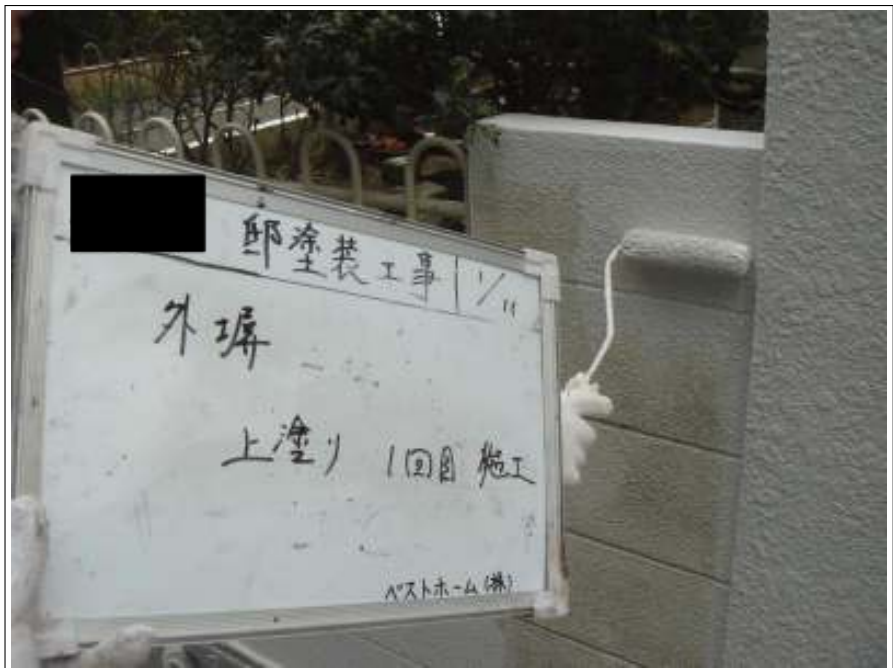 邸塗装工事 11/11
外塀
上塗り 1回目 施工
ベストホーム(株)